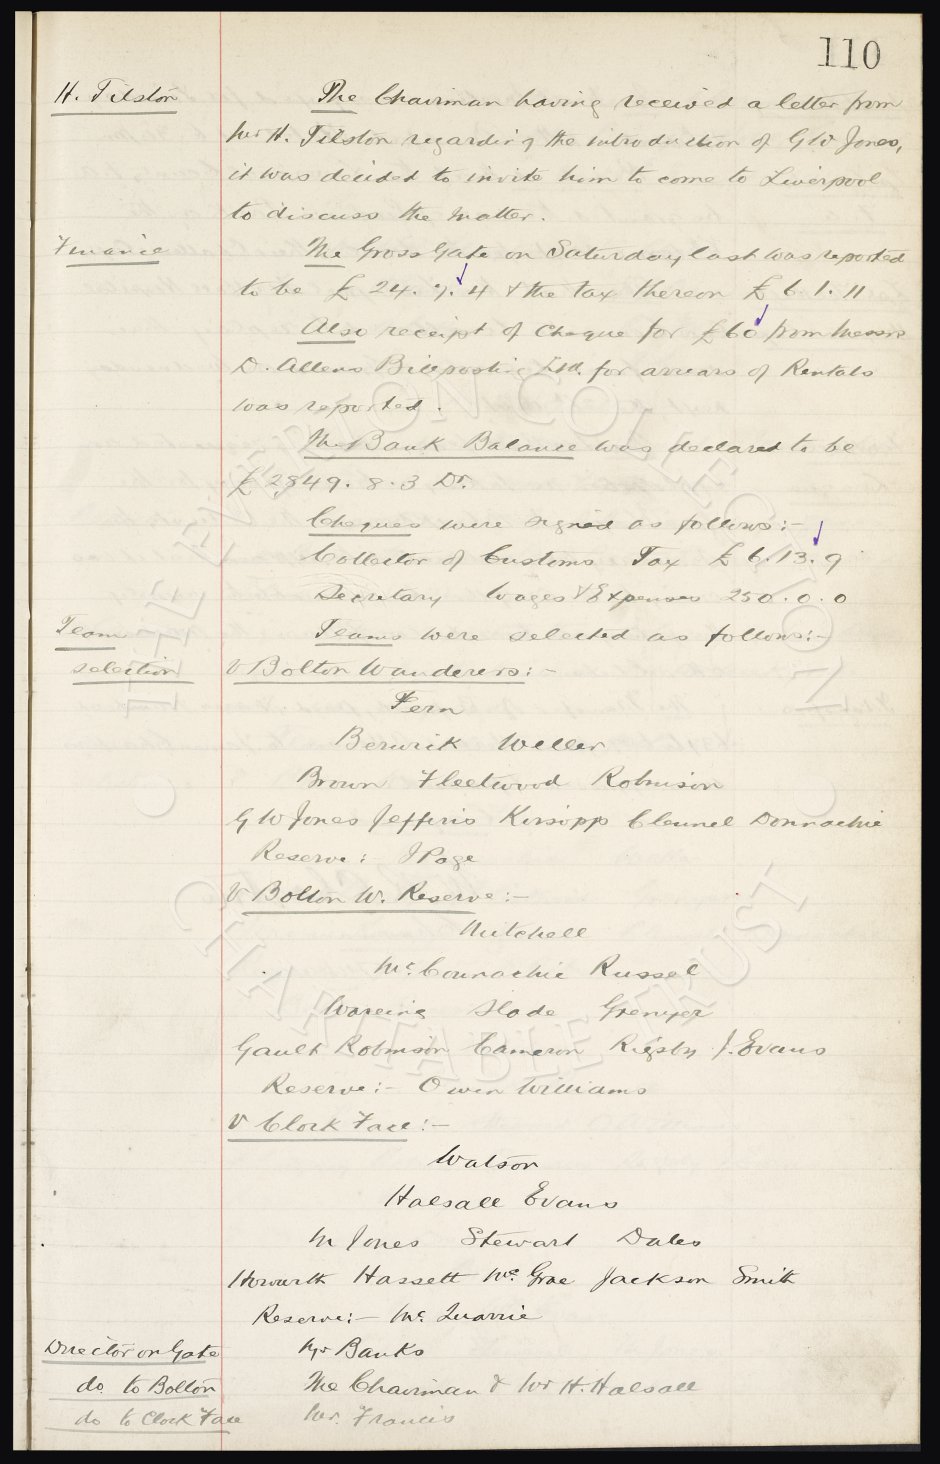 110
H. Tilston
The Chairman having received a letter from
Mr H. Tilston regarding the introduction of G W Jones,
it was decided to invite him to come to Liverpool
to discuss the matter.
Finance
The Gross Gate on Saturday last was reported
to be £ 24. 9. 4 & the tax thereon £ 6. 1. 11
Also receipt of Cheque for £60 from Messrs
D. Allens Billposting Ltd. for arrears of Rentals
was reported.
The Bank Balance was declared to be
£ 2849. 8. 3 Dr.
Cheques were signed as follows:-
Collector of Customs Tax £ 6. 13. 9
Secretary Wages & Expenses 250. 0. 0
Team
selection
Teams were selected as follows:-
V Bolton Wanderers:-
Fern
Berwick Weller
Brown Fleetwood Robinson
G W Jones Jefferis Kirsopp Clennel Donnachie
Reserve: J Page
V Bolton W. Reserve:-
Mitchell
McConnachie Russel
Wareing Slade Grenyer
Gault Robinson Cameron Rigsby J. Evans
Reserve:- Owen Williams
V Clock Face:-
Watson
Halsall Evans
M Jones Stewart Dales
Howarth Hassett Mc.Grae Jackson Smith
Reserve:- Mc.Quarrie
Director on Gate Mr Banks
do. to Bolton The Chairman & Mr H. Halsall
do to Clock Face Mr. Francis